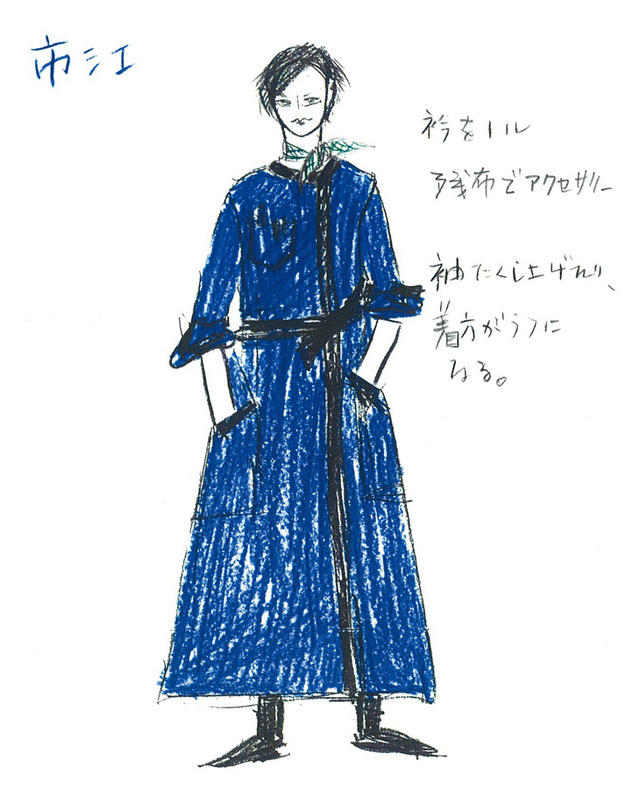 市江
衿をトル
残布でアクセサリー
袖たくし上げたり、
着方がラフに
なる。